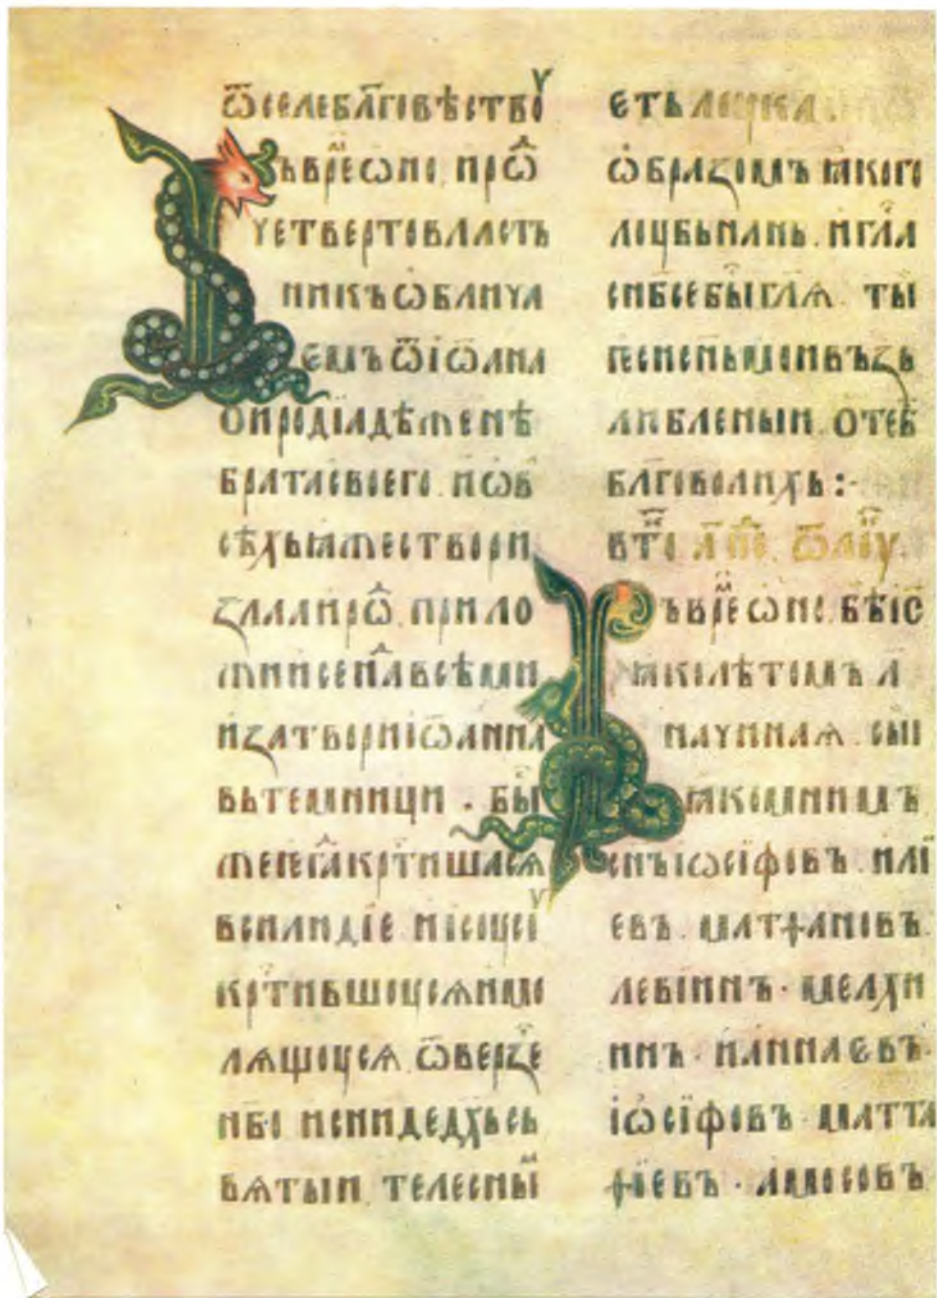 ѿселеблⷢ҇овѣствоⷹ
ъврⷨ҇еѡно. прѡⷣ
четвертовласть
никъѡблича
емъѿіѡана
оиродїадѣженѣ
братасвоего. иѡв
сѣхъꙗжестворї
ꙁлалаирѡⷣ. прило
жиисенаⷣвсѣми
иꙁатвориіѡанна
втемници. бы
жеегⷣакрⷭ҇тишасѧ
всилюдїе иісоусоⷹ
крⷭ҇тившоусѧимо
лѧщоусѧ ѿверꙁе
нб҃о иснидедх҃ъсъ
вѧтыи. телесныⷨ
еть
ѡбраꙁомъ ꙗкого
лоубьнань. игла
снб҃себыглѧ. ты
есиснъмоивъꙁь
люблены. отеб
блг҃оволихъ:-
ъврⷨ҇еѡно. бѣіс҃
ꙗколѣтомъ л҃
начинаѧ. сыи
ꙗкомнимъ
снъіѡсїфовъ. илї
евъ. матѳановъ.
левїинъ. мелхи
инъ. ианнаевъ.
іѡсїфовъ. матта
ѳїевъ. амосовъ